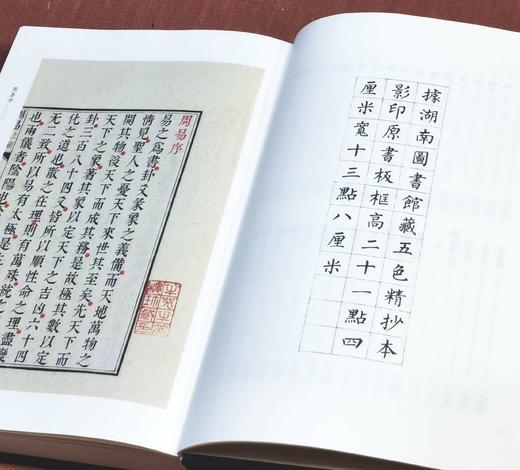 據湖南圖書館藏五色精抄本
影印原書板框高二十一點四
厘米寬十三點八厘米
周易序
易之爲書卦爻彖象之義備而天地萬物之
情見聖人之憂天下來世其至矣先天下而
開其物後天下而成其務是故極其數以定
天下之象著其象以定天下之吉凶六十四
卦三百八十四爻皆所以順性命之理盡變
化之道也散之在理則有萬殊統之
无二致所以易有太極是生
也兩儀者陰陽也
周易序